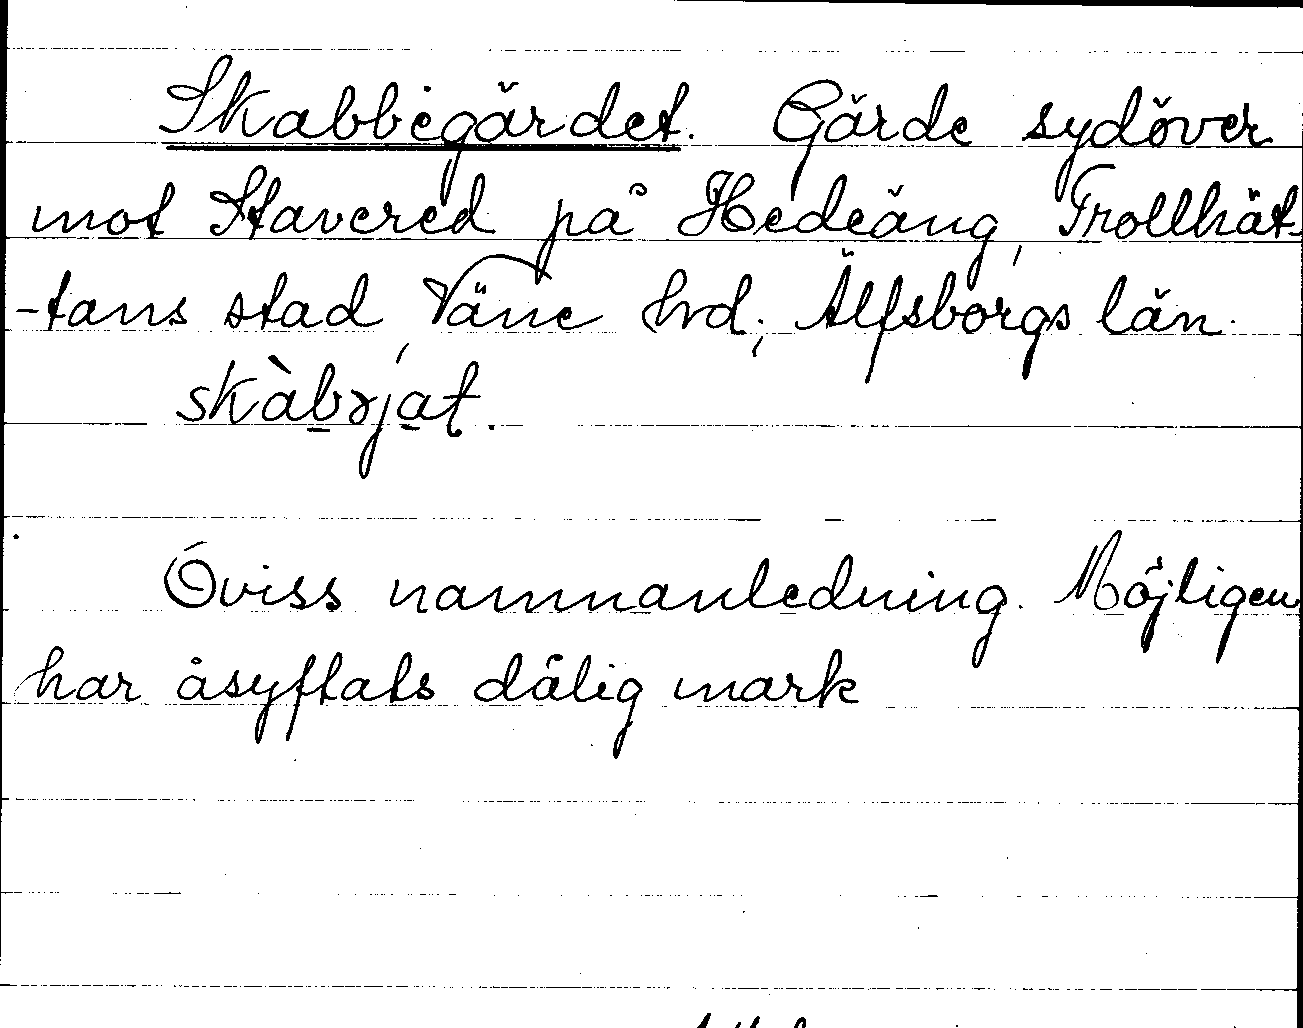 Skabbegärdet. Gärde sydöver
mot Stavered på Hedeäng, Trollhät-
-tans stad, Väne hrd, Älfsborgs län.
skàbɤjat.
Oviss namnanledning. Möjligen
har åsyftats dålig mark